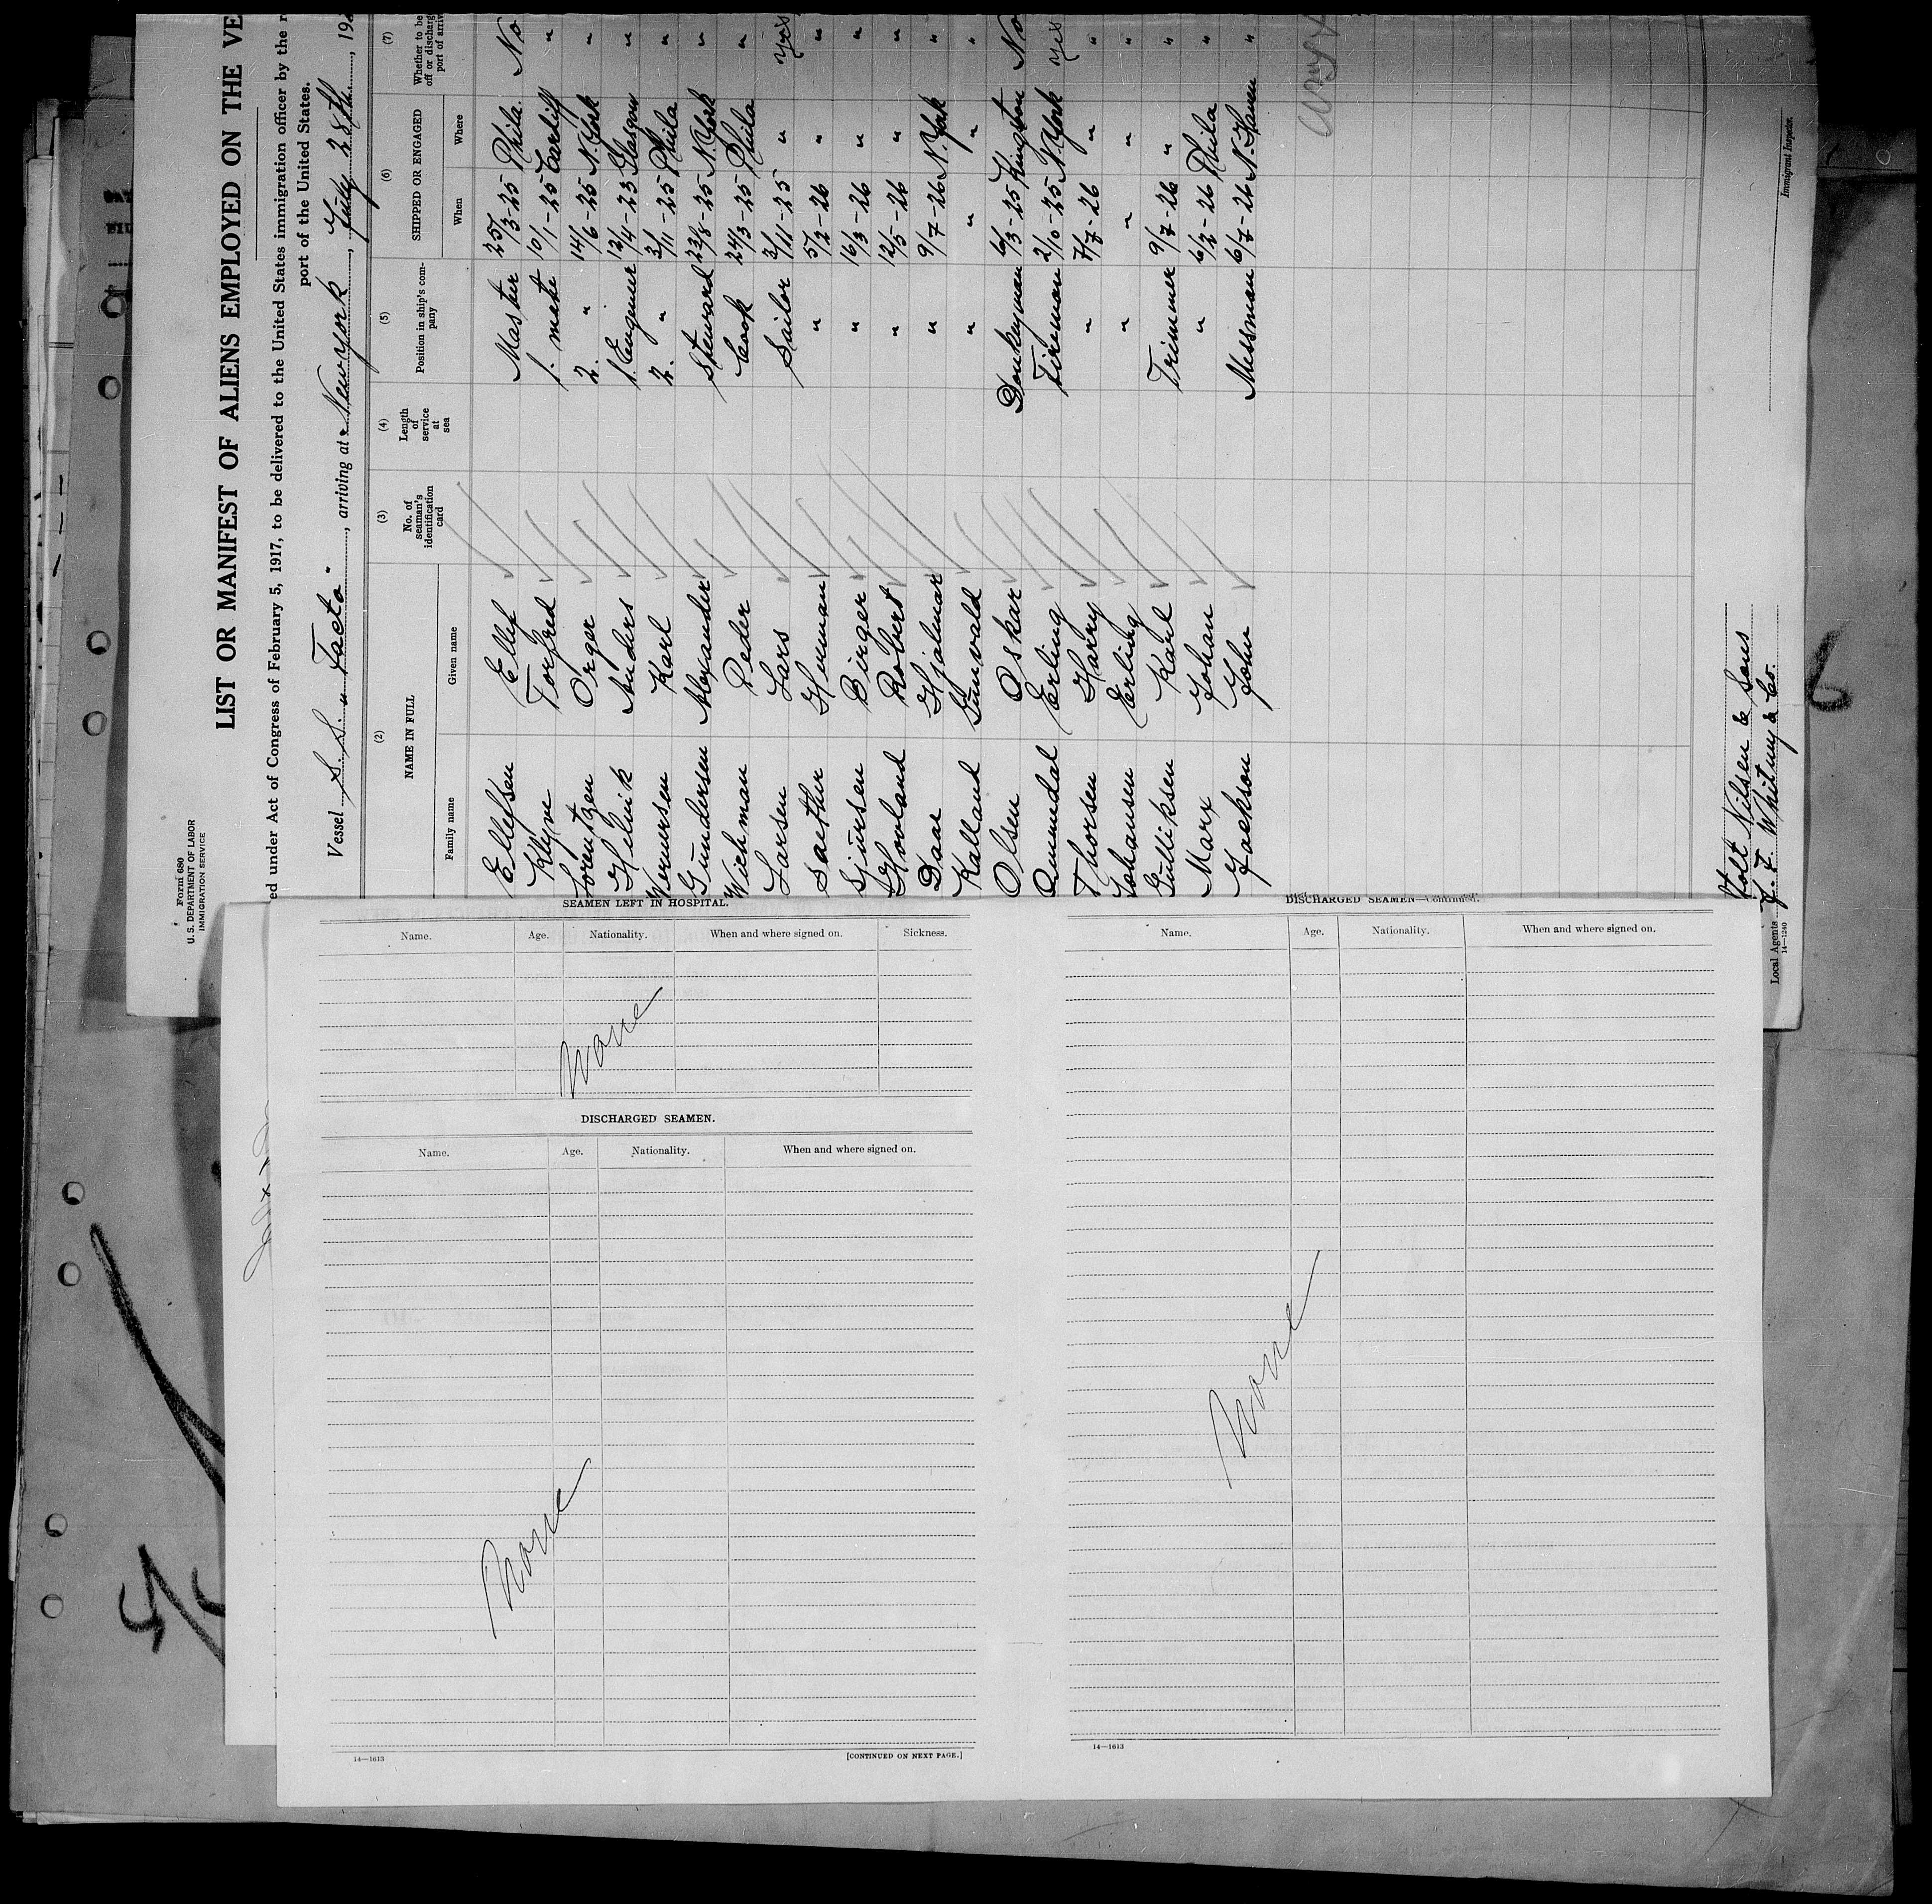 Form 680
U. S. DEPARTMENT OF LABOR
IMMIGRATION SERVICE
LIST OR MANIFEST OF ALIENS EMPLOYED ON THE VE
ed under Act of Congress of February 5, 1917, to be delivered to the United States immigration officer by the r
port of the United States.
Vessel S. S. "Facto", arriving at Newyork, July 28th, 192
(2) (3) (4) (5) (6) (7)
NAME IN FULL No. of seaman's identification card Length of service at sea Position in ship's company SHIPPED OR ENGAGED Whether to be off or discharg port of arriv
Family name Given name When Where
Ellefsen Ellef Master 25/3-25 Phila. No
Kleyve Torfred 1. mate 10/1-25 Cardiff "
Lorentzen Örger 2. " 14/6-25 N.York "
Helvik Anders 1. Engineer 12/4-23 Glasgow "
Wernersen Karl 2. " 3/11-25 Phila "
Gundersen Alexander Steward 23/8-25 N.York "
Wichman Peder Cook 24/3-25 Phila "
Larsen Lars Sailor 3/11-25 " yes
Saether Herman " 5/2-26 " "
Sjursen Birger " 16/3-26 " "
Hovland Robert " 12/5-26 " "
Daae Hjalmar " 9/7-26 N.York "
Kalland Gunvald " " " "
Olsen Oskar Donkeyman 6/3-25 Kingston No
Ommedal Erling Fireman 2/10-25 N.York yes
Thorsen Harry " 7/7-26 " "
Johansen Erling " " " "
Gulliksen Karl Trimmer 9/7-26 " "
Marx Johan " 6/2-26 Phila "
Jackson John Messman 6/7-26 N.Haven "
Holt Nilsen & Sons
Local Agents J. F. Whitney & Co.
14—1240
Immigrant Inspector.
SEAMEN LEFT IN HOSPITAL.
Name. Age. Nationality. When and where signed on. Sickness.
None
DISCHARGED SEAMEN.
Name. Age. Nationality. When and where signed on.
None
14—1613 [CONTINUED ON NEXT PAGE.]
DISCHARGED SEAMEN—Continued.
Name. Age. Nationality. When and where signed on.
None
14—1613